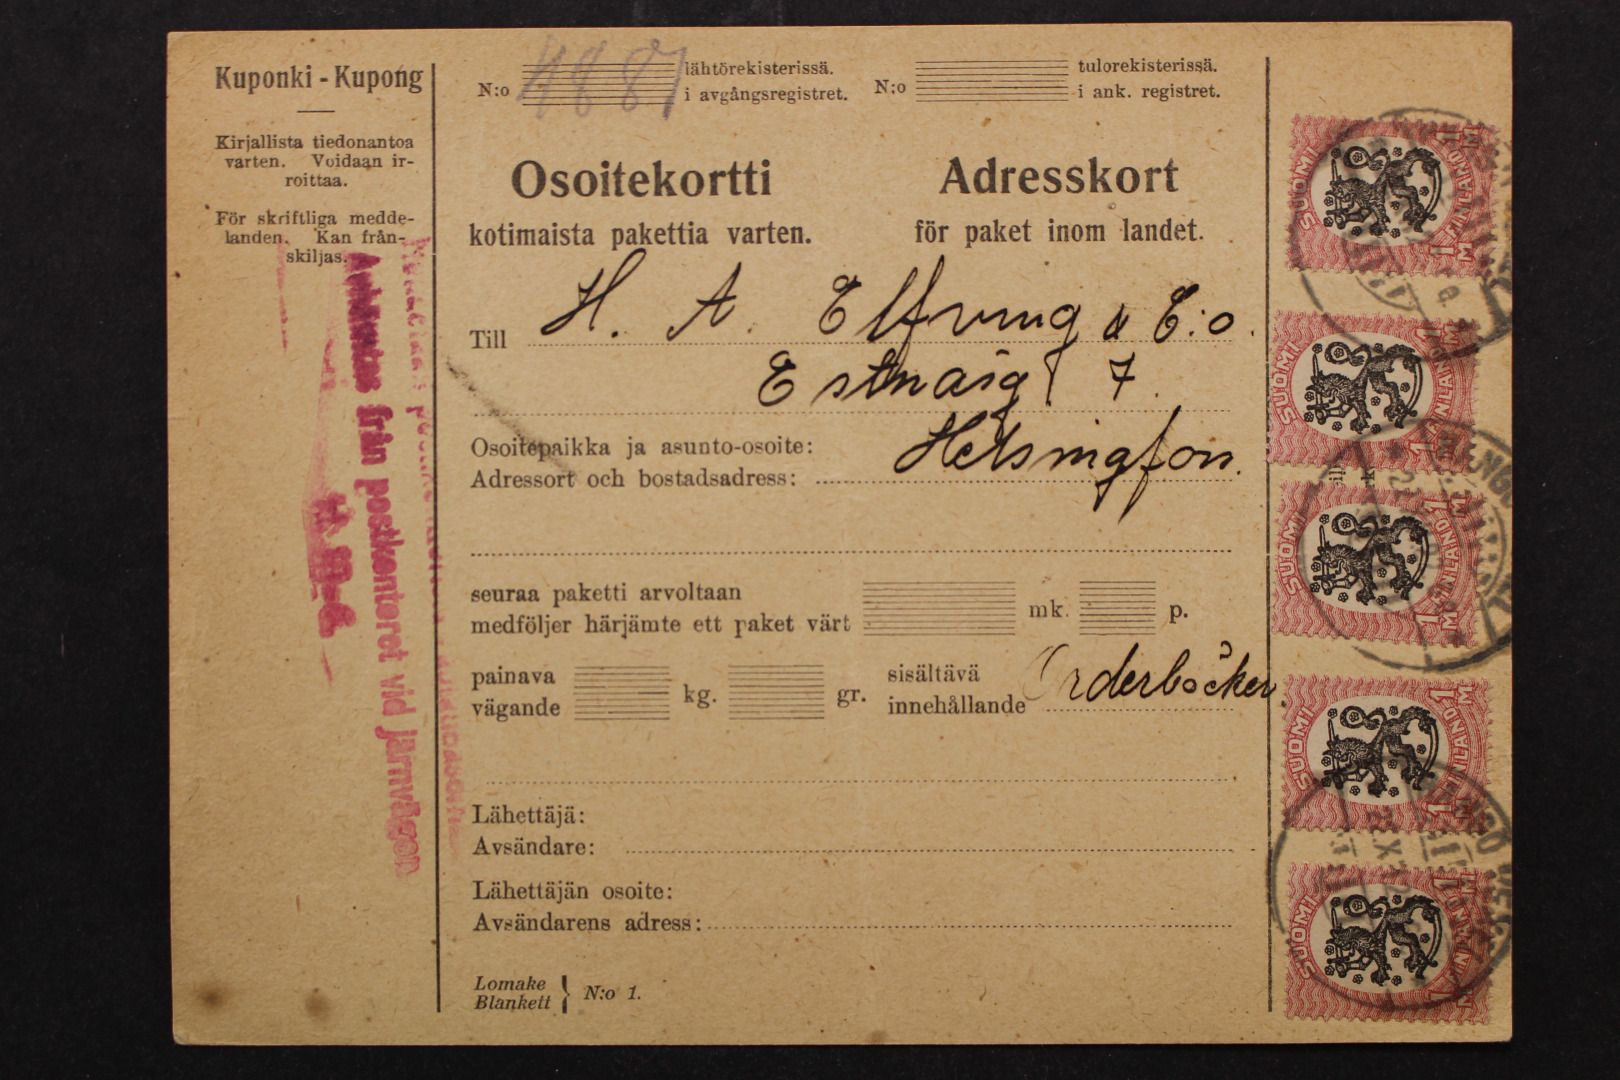 Kuponki - Kupong
Kirjallista tiedonantoa
varten. Voidaan ir-
roittaa.
För skriftliga medde-
landen. Kan från-
skiljas.
Avhämtas från postkontoret vid järnvägen
N:o 4887 lähtörekisterissä.
i avgångsregistret.
N:o tulorekisterissä.
i ank. registret.
Osoitekortti
kotimaista pakettia varten.
Adresskort
för paket inom landet.
Till H. A. Elfving & C:o.
7.
Osoitepaikka ja asunto-osoite:
Adressort och bostadsadress: Helsingfors.
seuraa paketti arvoltaan
medföljer härjämte ett paket värt mk. p.
painava
vägande kg. gr.
sisältävä
innehållande Orderböcker
Lähettäjä:
Avsändare:
Lähettäjän osoite:
Avsändarens adress:
Lomake
Blankett } N:o 1.
SUOMI FINLAND 1 M 1 M
SUOMI FINLAND 1 M 1 M
SUOMI FINLAND 1 M 1 M
SUOMI FINLAND 1 M 1 M
SUOMI FINLAND 1 M 1 M